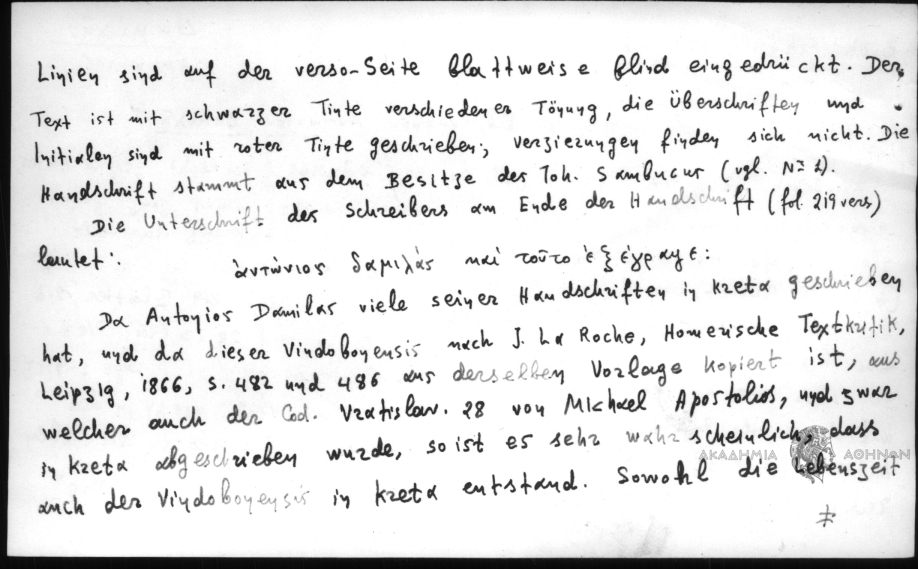 Linien sind auf der verso-Seite blattweise blind eingedrückt. Der
Text ist mit schwarzer Tinte verschiedener Tönung, die Überschriften und
Initialen sind mit roter Tinte geschrieben; verzierungen finden sich nicht. Die
Handschrift stammt aus dem Besitze des Joh. Sambucus (vgl. N= 1).
Die Unterschrift des Schreibers am Ende der Handschrift (fol. 219 vers)
lautet:
ἀντώνιος δαμιλάς καὶ τοῦτο ἐξέγραψε:
Da Antonios Damilas viele seiner Handschriften in Kreta geschrieben
hat, und da dieser Vindobonensis nach J. La Roche, Homerische Textkritik,
Leipzig, 1866, S. 482 und 486 aus derselben Vorlage kopiert ist, aus
welcher auch der Cod. Vratislav. 28 von Michael Apostolios, und zwar
in Kreta abgeschrieben wurde, so ist es sehr wahrscheinlich, dass
ΑΚΑΔΗΜΙΑ ΑΘΗΝΩΝ
auch der Vindobonensis in Kreta entstand. Sowohl die Lebenszeit